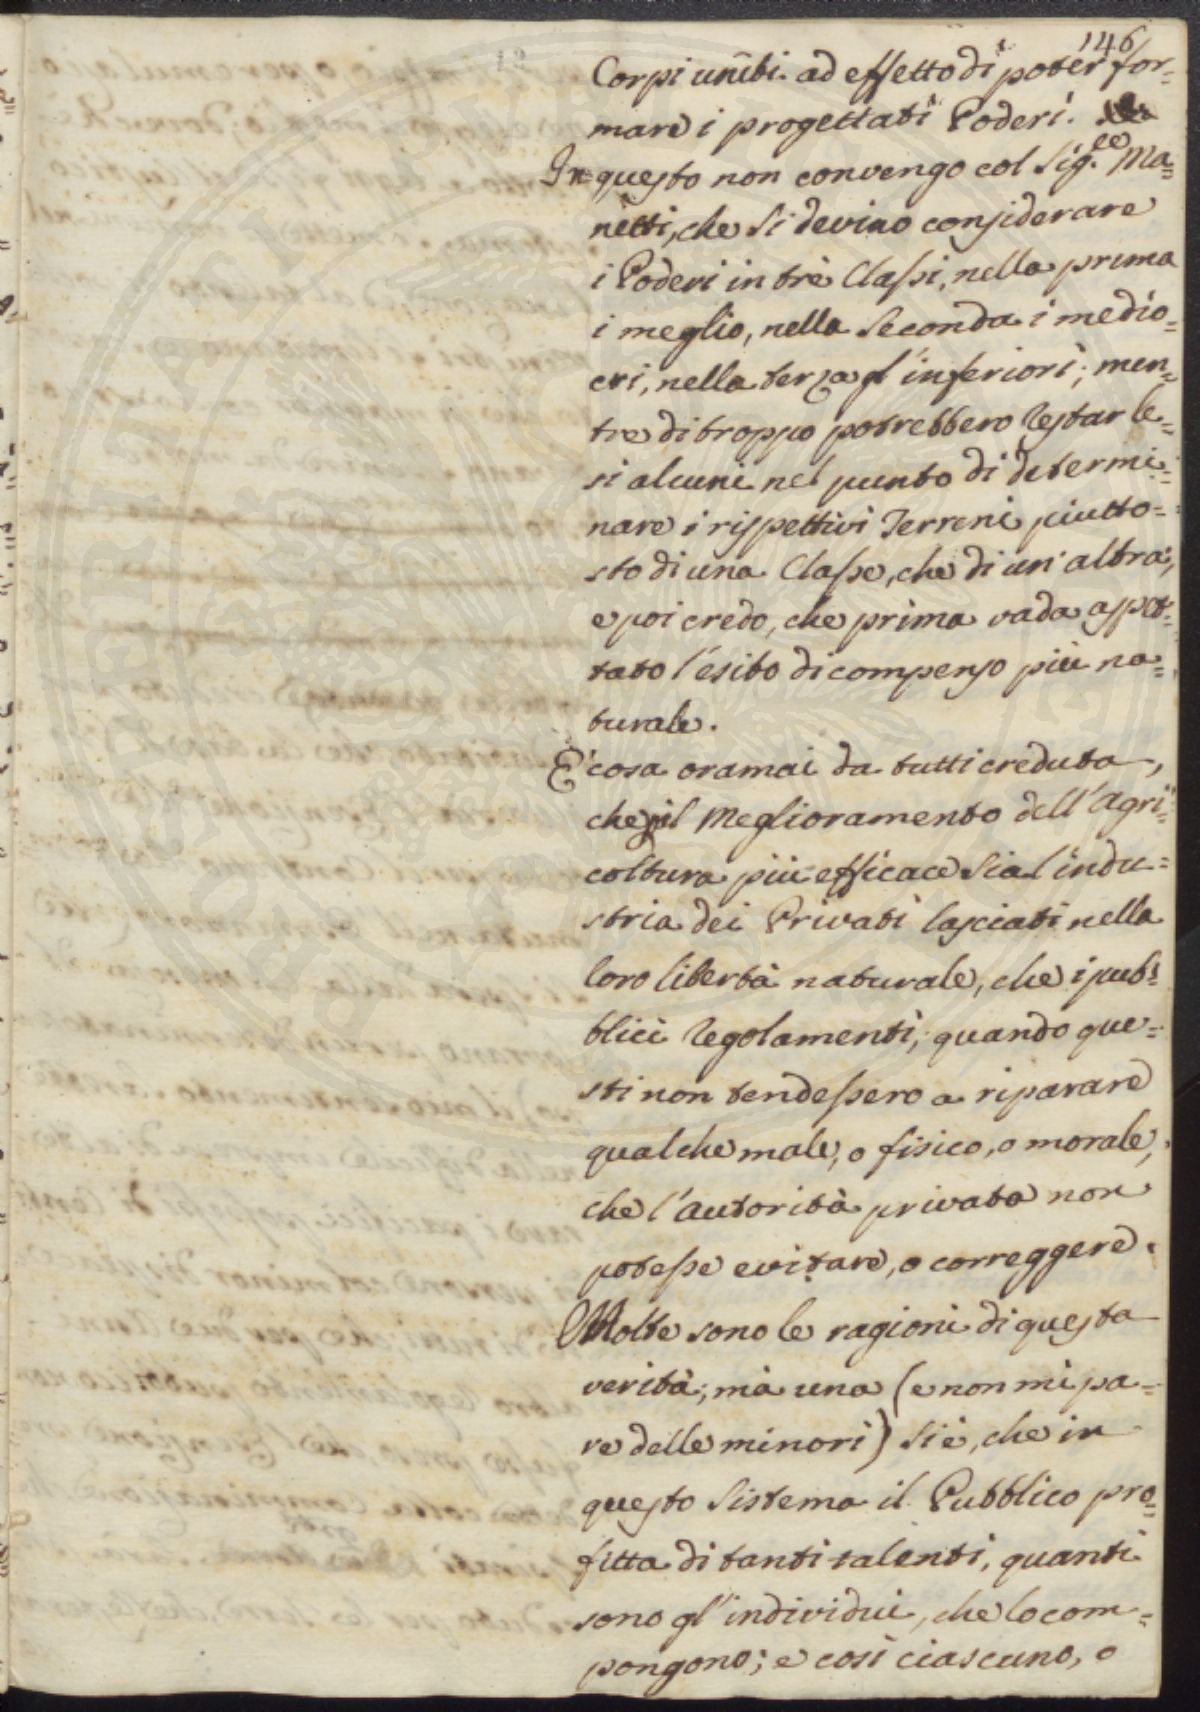 146
Corpi uniti. ad effetto di poter for=
mare i progettati Poderi.
In questo non convengo col Sig.re Ma=
netti, che si devino considerare
i Poderi in trè Classi, nella prima
i meglio, nella Seconda i medio=
cri, nella terza gl'inferiori; men=
tre di troppo potrebbero restar le=
si alcuni nel punto di determi=
nare i rispettivi Terreni piutto=
sto di una Classe, che di un'altra;
e poi credo, che prima vada aspet=
tato l'esito di compenso più na=
turale.
È cosa oramai da tutti creduta,
che il Meglioramento dell'Agri=
coltura più efficace sia l'indu=
stria dei Privati lasciati nella
loro libertà naturale, che i pub=
blici regolamenti; quando que=
sti non tendessero a riparare
qualche male, o fisico, o morale,
che l'autorità privata non
potesse evitare, o correggere.
Molte sono le ragioni di questa
verità; mà una (e non mi pa=
re delle minori) si è, che in
questo Sistema il Pubblico pro=
fitta di tanti talenti, quanti
sono gl'individui, che lo com=
pongono; e così ciascuno, o